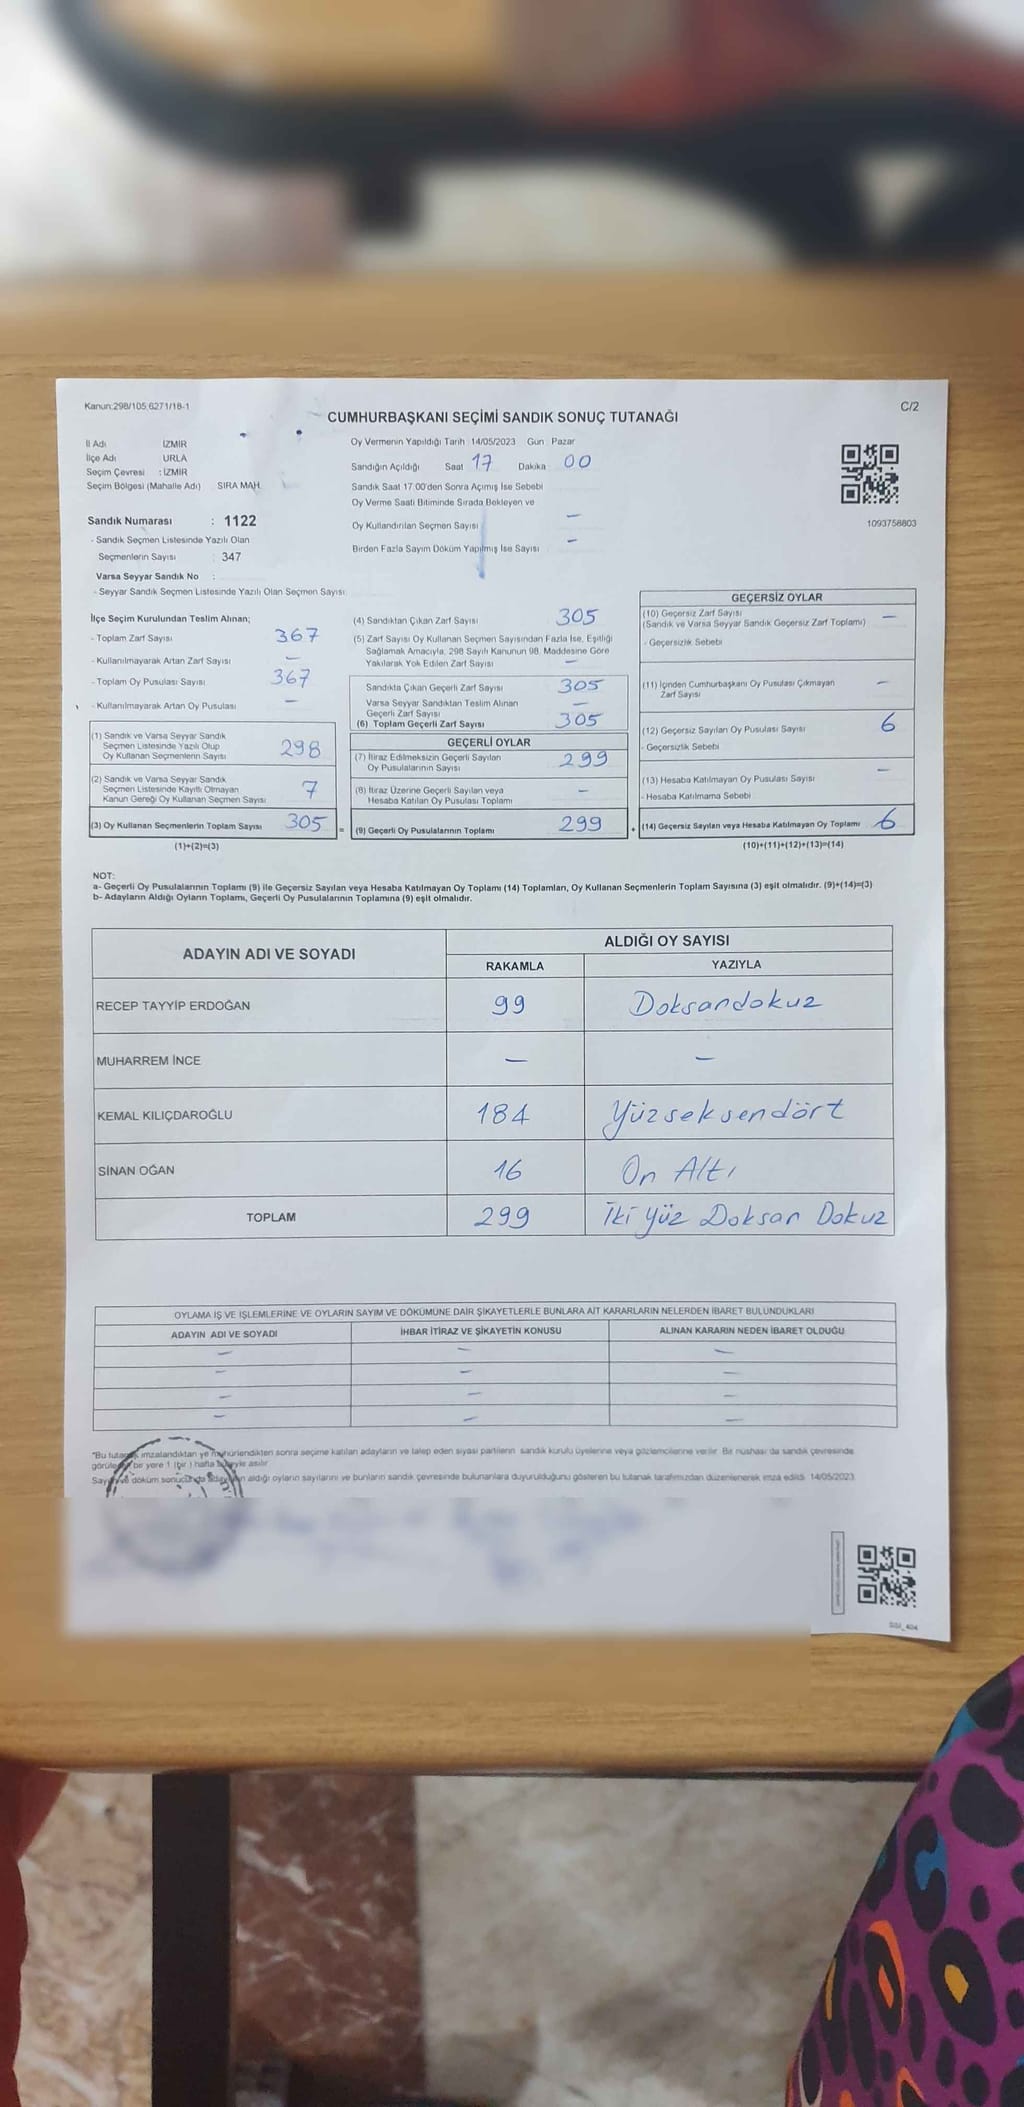 Kanun:298/105,6271/18-1
C/2
CUMHURBAŞKANI SEÇİMİ SANDIK SONUÇ TUTANAĞI
İl Adı İZMİR
İlçe Adı URLA
Seçim Çevresi : İZMİR
Seçim Bölgesi (Mahalle Adı) SIRA MAH.
Oy Vermenin Yapıldığı Tarih 14/05/2023 Gün Pazar
Sandığın Açıldığı Saat 17 Dakika 00
Sandık Saat 17.00'den Sonra Açımış İse Sebebi
Oy Verme Saati Bitiminde Sırada Bekleyen ve
Oy Kullandırılan Seçmen Sayısı –
Birden Fazla Sayım Döküm Yapılmış İse Sayısı –
1093758803
Sandık Numarası : 1122
- Sandık Seçmen Listesinde Yazılı Olan
Seçmenlerin Sayısı : 347
Varsa Seyyar Sandık No :
- Seyyar Sandık Seçmen Listesinde Yazılı Olan Seçmen Sayısı:
İlçe Seçim Kurulundan Teslim Alınan;
- Toplam Zarf Sayısı 367
- Kullanılmayarak Artan Zarf Sayısı –
- Toplam Oy Pusulası Sayısı 367
- Kullanılmayarak Artan Oy Pusulası –
(1) Sandık ve Varsa Seyyar Sandık
Seçmen Listesinde Yazılı Olup
Oy Kullanan Seçmenlerin Sayısı 298
(2) Sandık ve Varsa Seyyar Sandık
Seçmen Listesinde Kayıtlı Olmayan
Kanun Gereği Oy Kullanan Seçmen Sayısı 7
(3) Oy Kullanan Seçmenlerin Toplam Sayısı 305
(1)+(2)=(3)
(4) Sandıktan Çıkan Zarf Sayısı 305
(5) Zarf Sayısı Oy Kullanan Seçmen Sayısından Fazla İse, Eşitliği
Sağlamak Amacıyla, 298 Sayılı Kanunun 98. Maddesine Göre
Yakılarak Yok Edilen Zarf Sayısı –
Sandıkta Çıkan Geçerli Zarf Sayısı 305
Varsa Seyyar Sandıktan Teslim Alınan
Geçerli Zarf Sayısı –
(6) Toplam Geçerli Zarf Sayısı 305
GEÇERLİ OYLAR
(7) İtiraz Edilmeksizin Geçerli Sayılan
Oy Pusulalarının Sayısı 299
(8) İtiraz Üzerine Geçerli Sayılan veya
Hesaba Katılan Oy Pusulası Toplamı –
= (9) Geçerli Oy Pusulalarının Toplamı 299
GEÇERSİZ OYLAR
(10) Geçersiz Zarf Sayısı
(Sandık ve Varsa Seyyar Sandık Geçersiz Zarf Toplamı) –
- Geçersizlik Sebebi
(11) İçinden Cumhurbaşkanı Oy Pusulası Çıkmayan
Zarf Sayısı –
(12) Geçersiz Sayılan Oy Pusulası Sayısı 6
- Geçersizlik Sebebi
(13) Hesaba Katılmayan Oy Pusulası Sayısı –
- Hesaba Katılmama Sebebi
+ (14) Geçersiz Sayılan veya Hesaba Katılmayan Oy Toplamı 6
(10)+(11)+(12)+(13)=(14)
NOT:
a- Geçerli Oy Pusulalarının Toplamı (9) ile Geçersiz Sayılan veya Hesaba Katılmayan Oy Toplamı (14) Toplamları, Oy Kullanan Seçmenlerin Toplam Sayısına (3) eşit olmalıdır. (9)+(14)=(3)
b- Adayların Aldığı Oyların Toplamı, Geçerli Oy Pusulalarının Toplamına (9) eşit olmalıdır.
ADAYIN ADI VE SOYADI ALDIĞI OY SAYISI
RAKAMLA YAZIYLA
RECEP TAYYİP ERDOĞAN 99 Doksandokuz
MUHARREM İNCE – –
KEMAL KILIÇDAROĞLU 184 Yüzseksendört
SİNAN OĞAN 16 On Altı
TOPLAM 299 İki Yüz Doksan Dokuz
OYLAMA İŞ VE İŞLEMLERİNE VE OYLARIN SAYIM VE DÖKÜMÜNE DAİR ŞİKAYETLERLE BUNLARA AİT KARARLARIN NELERDEN İBARET BULUNDUKLARI
ADAYIN ADI VE SOYADI İHBAR İTİRAZ VE ŞİKAYETİN KONUSU ALINAN KARARIN NEDEN İBARET OLDUĞU
– – –
– – –
– – –
– – –
*Bu tutanak imzalandıktan ve mühürlendikten sonra seçime katılan adayların ve talep eden siyasi partilerin sandık kurulu üyelerine veya gözlemcilerine verilir. Bir nüshası da sandık çevresinde
görülen bir yere 1 (bir ) hafta süreyle asılır.
Sayım ve döküm sonucunda adayların aldığı oyların sayılarını ve bunların sandık çevresinde bulunanlara duyurulduğunu gösteren bu tutanak tarafımızdan düzenlenerek imza edildi. 14/05/2023